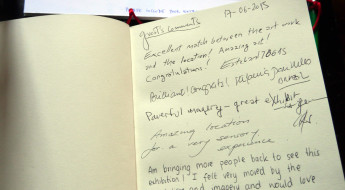 Guest's Comments
17-06-2015
Excellent match between the art work
and the location! Amazing art!
Congratulations!
Brilliant! Congrats!
Powerful imagery - great exhibit
Amazing location
for a very sensory
experience
Am bringing more people back to see this
exhibition! I felt very moved by the
and imagery and would love